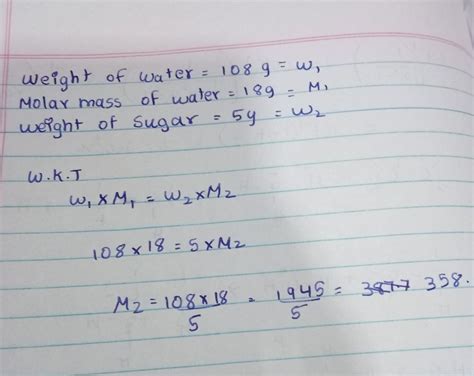 Weight of water = 108 g = W₁
Molar mass of water = 18g = M₁
Weight of sugar = 5g = W₂
W.K.T
W₁ × M₁ = W₂ × M₂
108 × 18 = 5 × M₂
M₂ = 108 × 18 / 5 = 1945 / 5 = 3877 358.